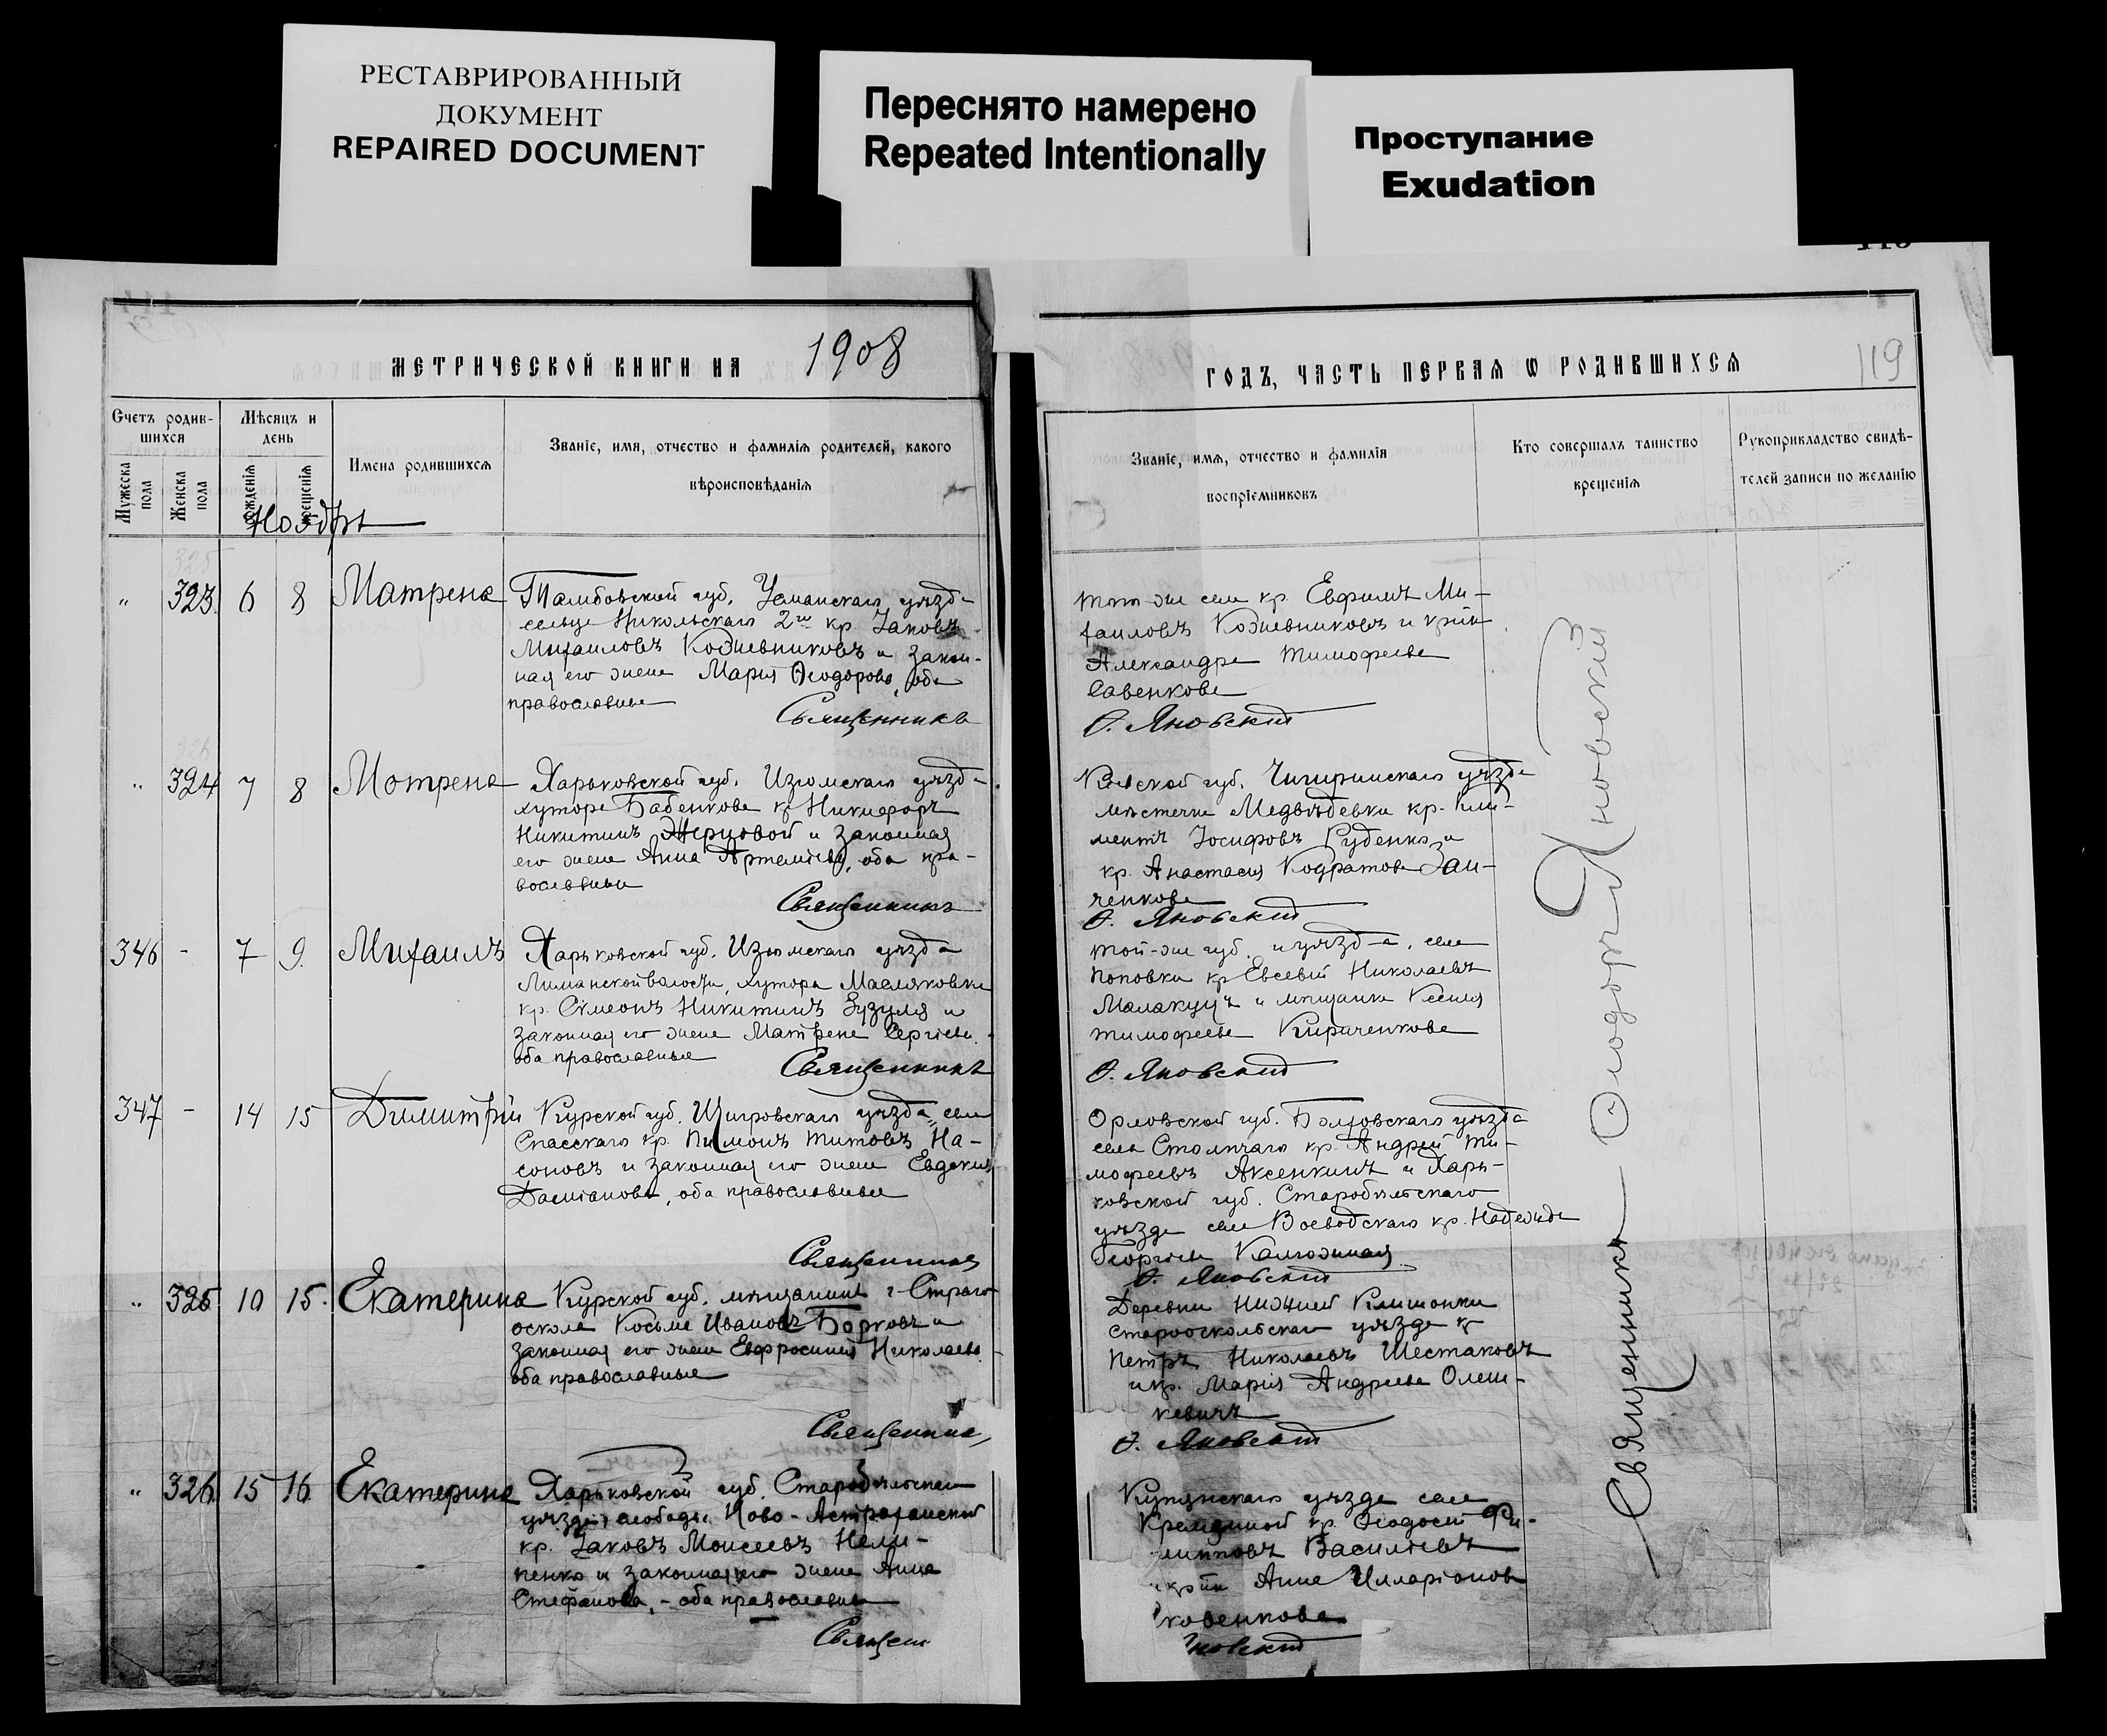 РЕСТАВРИРОВАННЫЙ
ДОКУМЕНТ
REPAIRED DOCUMENT
Переснято намерено
Repeated Intentionally
Проступание
Exudation
МЕТРИЧЕСКОЙ КНИГИ НА 1908
Счетъ родив-
шихся
Мужеска пола
Женска пола
Мѣсяцъ и
день
рожденія
крещенія
Имена родившихся
Званіе, имя, отчество и фамилія родителей, какого
вѣроисповѣданія
Ноябрь
" 323. 6 8 Матрена
Тамбовской губ. Усманскаго уѣзда
сельца Никольскаго 2го кр. Іаковъ
Михаиловъ Кожевниковъ и закон-
ная его жена Марія Ѳеодорова, оба
православные
Священникъ
" 324 7 8 Мотрена
Харьковской губ. Изюмскаго уѣзда
хутора Бабенкова кр. Никифоръ
Никитинъ Жерновой и законная
его жена Анна Артеміева, оба пра-
вославные
Священникъ
346 - 7 9. Михаилъ
Харьковской губ. Изюмскаго уѣзда
Лиманской волости, хутора Масляковки
кр. Симеонъ Никитинъ Зузуля и
законная его жена Матрена Сергіева
оба православные
Священникъ
347 - 14 15 Димитрій
Курской губ. Щигровскаго уѣзда, села
Спасскаго кр. Пимонъ Титовъ На-
соновъ и законная его жена Евдокія
Даміанова, оба православные
Священникъ
" 325 10 15. Екатерина
Курской губ. мѣщанинъ г. Стараго
оскола Косьма Ивановъ Борковъ и
законная его жена Евфросинія Николаева
оба православные
Священникъ
" 326. 15 16. Екатерина
Харьковской губ. Старобѣльскаго
уѣзда, слободы Ново-Астраханской
кр. Іаковъ Моисеевъ Нели-
пенко и законная его жена Анна
Стефанова, - оба православные
Священ
ГОДЪ, ЧАСТЬ ПЕРВАЯ Ѡ РОДИВШИХСЯ
119
Званіе, имя, отчество и фамилія
воспріемниковъ
Кто совершалъ таинство
крещенія
Рукоприкладство свидѣ-
телей записи по желанію
того-же села кр. Евфимъ Ми-
хаиловъ Кожевниковъ и кр-ка
Александра Тимофеева
Савенкова
Ѳ. Яновскій
Кіевской губ. Чигиринскаго уѣзда
мѣстечка Медвѣдевки кр. Кли-
ментъ Іосифовъ Руденко и
кр. Анастасія Кодратова Заи-
ченкова
Ѳ. Яновскій
той-же губ. и уѣзда, села
Поповки кр. Евсевій Николаевъ
Малакуцъ и мѣщанка Ксенія
Тимофеева Кириченкова
Ѳ. Яновскій
Орловской губ. Болховскаго уѣзда
села Столпчаго кр. Андрей Ти-
мофеевъ Аксенкинъ и Харь-
ковской губ. Старобѣльскаго
уѣзда села Воеводскаго кр. Надежда
Георгіева Калюжная
Ѳ. Яновскій
Деревни Нижней Клишонки
Старооскольскаго уѣзда кр
Петръ Николаевъ Шестаковъ
и кр. Марія Андреева Олеш-
кевичъ
Ѳ. Яновскій
Купянскаго уѣзда села
Кремянной кр. Ѳеодосій Фи-
липповъ Васильевъ
и кр-ка Анна Илларіонова
ковенкова
новскій
Священникъ Ѳеодоръ Яновскій